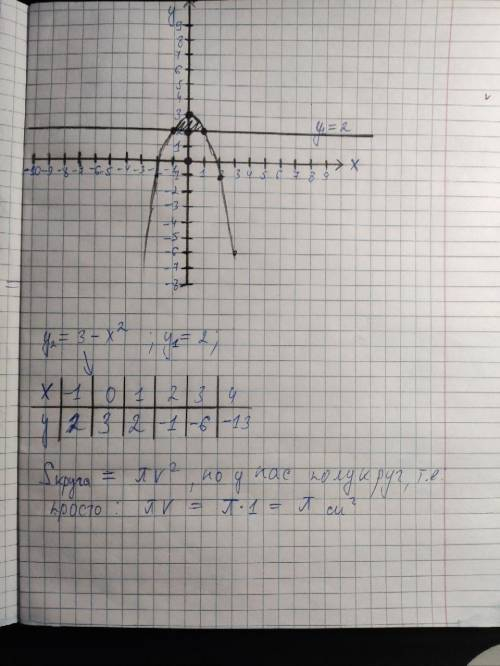 y
9
8
7
6
5
4
3
2
1
y₁=2
-10 -9 -8 -7 -6 -5 -4 -3 -2 -1 1 2 3 4 5 6 7 8 9 x
-1
-4
-5
-6
-7
-8
y₂ = 3 - x² ; y₁ = 2;
x | -1 | 0 | 1 | 2 | 3 | 4
y | 2 | 3 | 2 | -1 | -6 | -13
Sкруга = πr², но у нас полукруг, т.е
просто: πr = π·1 = π см²